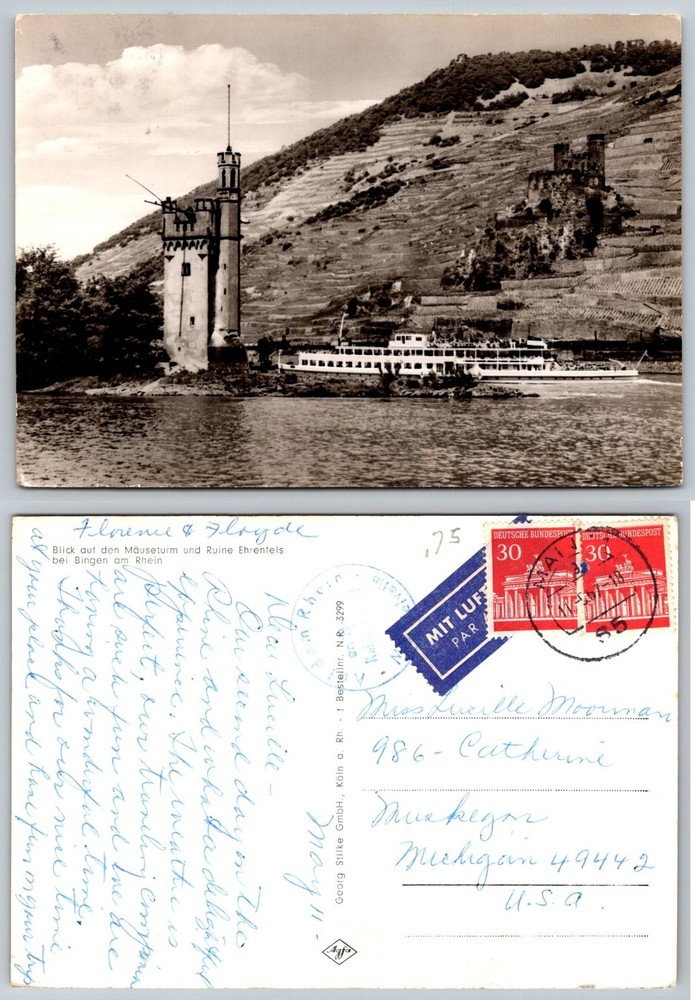 Florence & Floyde
Blick auf den Mäuseturm und Ruine Ehrenfels
bei Bingen am Rhein
May 11 -
Dear Lucille -
Our second day on the
Rhine and what a delightful
experience. The weather is
perfect, our traveling companions
are such fun and we are
having a wonderful time.
Thanks for our nice time
at your place and have fun on your trip
Georg Stilke GmbH., Köln a. Rh. - f Bestellnr. N R. 3299
Agfa
.75
MIT LUF
PAR
DEUTSCHE BUNDESPOST
30
DEUTSCHE BUNDESPOST
30
MAINZ
S5
Miss Lucille Moorman
986 - Catherine
Muskegon
Michigan 49442
U.S.A.